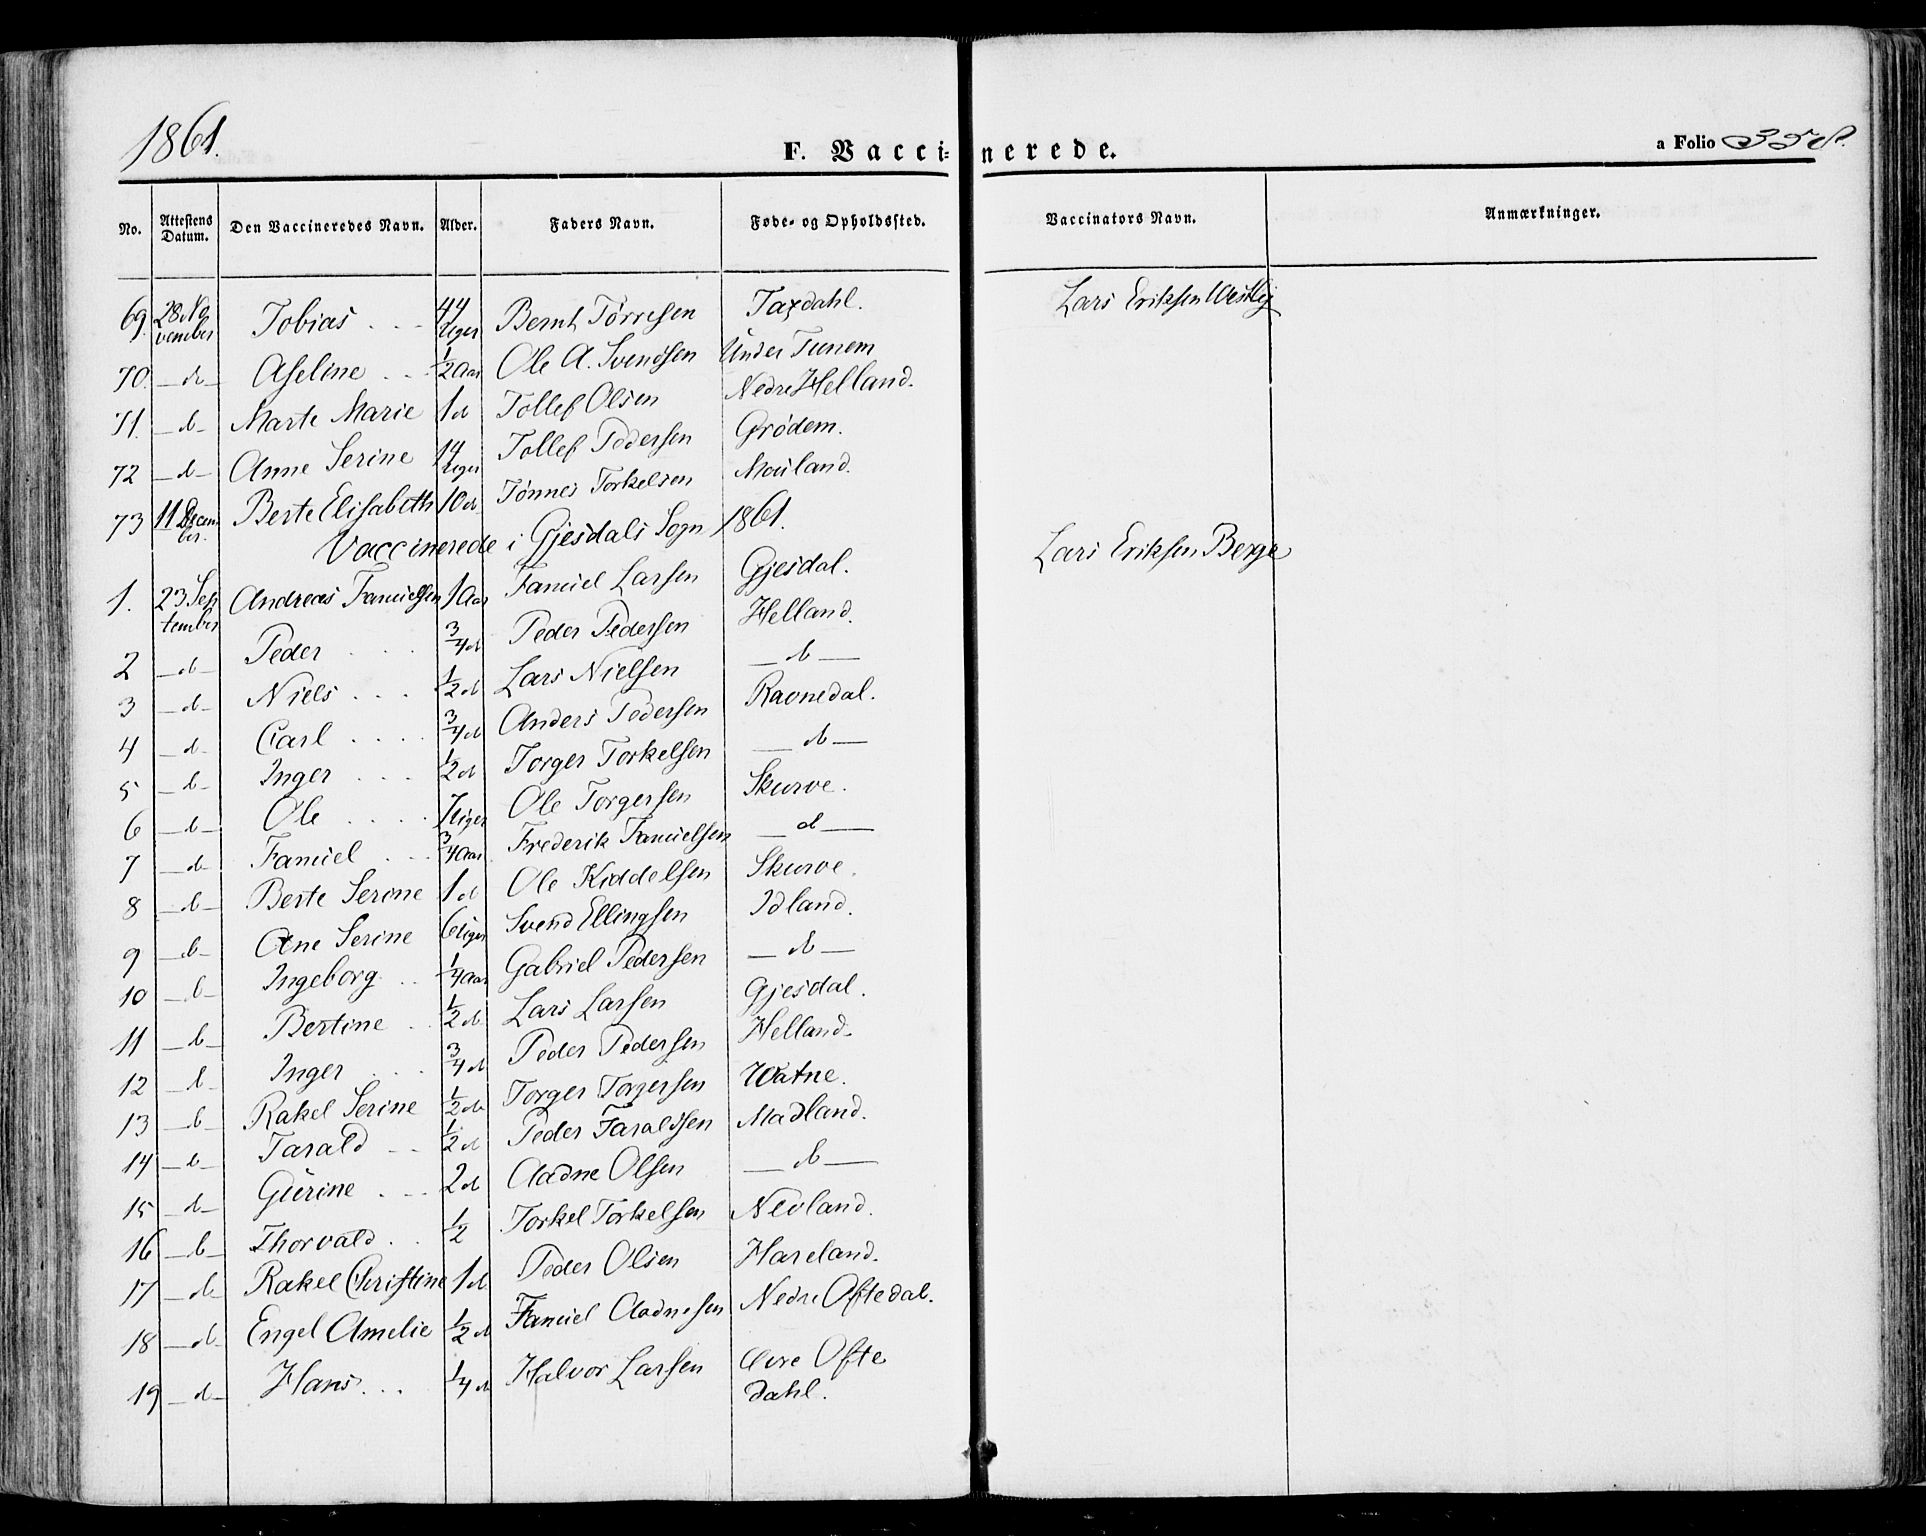 1861.
F. Vaccinerede.
a Folio 358.
No. Attestens Datum. Den Vaccineredes Navn. Alder. Faders Navn. Føde- og Opholdssted. Vaccinators Navn. Anmærkninger.
69. 28 November Tobias 44 Uger Bernt Tørresen Taxdahl. Lars Eriksen Westly
70. d Aseline 1/2 Aar Ole A. Svendsen Under Tunem
71. d Marte Marie 1 d Tollef Olsen Nedre Helland.
72 d Anne Serine 14 Uger Tollef Pedersen Grødem.
73 11 December. Berte Elisabeth 10 d Tønnes Torkelsen Mauland.
Vaccinerede i Gjesdals Sogn 1861.
1. 23 September Andreas Samuelsen 1 Aar Samuel Larsen Gjesdal. Lars Eriksen Berge
2 d Peder 3/4 d Peder Pedersen Helland.
3 d Niels 1/2 d Lars Nielsen d
4 d Carl 3/4 d Anders Pedersen Ravnedal.
5 d Inger 1/2 d Torger Torkelsen d
6 d Ole 7 Uger Ole Torgersen Skurve.
7 d Samuel 3/4 Aar Frederik Samuelsen d
8 d Berte Serine 1 d Ole Kiddelsen Skurve.
9 d Ane Serine 6 Uger Svend Ellingsen Idland.
10 d Ingeborg 1/4 Aar Gabriel Pedersen d
11 d Bertine 1/2 d Lars Larsen Gjesdal.
12 d Inger 3/4 d Peder Pedersen Helland.
13 d Rakel Serine 1/2 d Torger Torgersen Watne.
14 d Tarald 1/2 d Peder Taraldsen Madland.
15 d Gurine 2 d Aadne Olsen d
16 d Thorvald 1/2 Torkel Torkelsen Nevland.
17 d Rakel Christine 1 d Peder Olsen Hareland.
18 d Engel Amelie 1/2 d Samuel Aadnesen Nedre Oftedal.
19 d Hans 1/4 d Halvor Larsen Øvre Ofte
dahl.